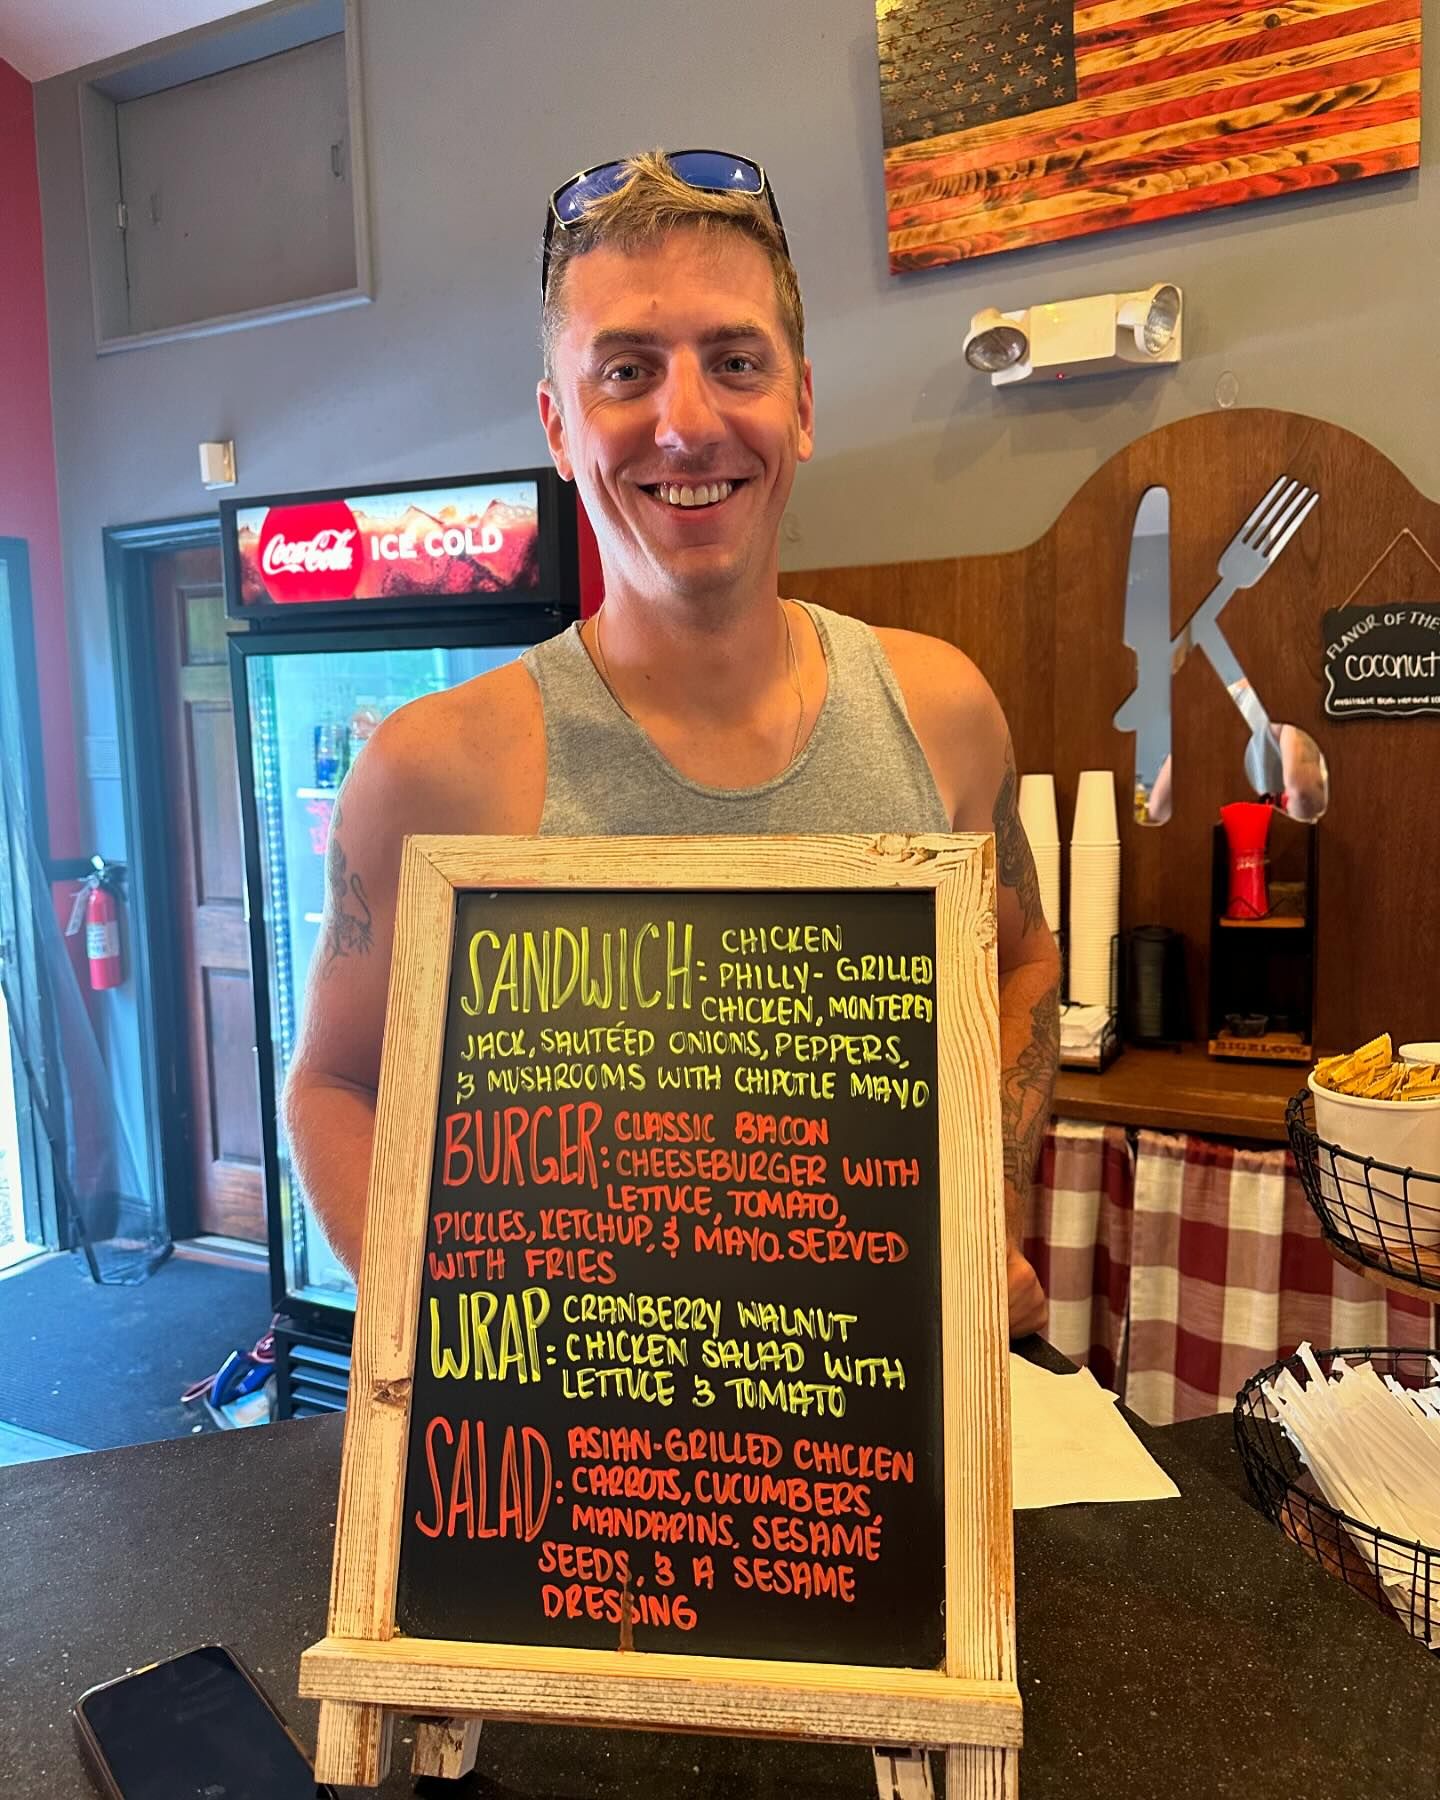 Coca-Cola ICE COLD
FLAVOR OF THE
COCONUT
SANDWICH: CHICKEN
PHILLY- GRILLED
CHICKEN, MONTEREY
JACK, SAUTÉED ONIONS, PEPPERS,
& MUSHROOMS WITH CHIPOTLE MAYO
BURGER: CLASSIC BACON
CHEESEBURGER WITH
LETTUCE, TOMATO,
PICKLES, KETCHUP, & MAYO. SERVED
WITH FRIES
WRAP: CRANBERRY WALNUT
CHICKEN SALAD WITH
LETTUCE & TOMATO
SALAD: ASIAN-GRILLED CHICKEN
CARROTS, CUCUMBERS,
MANDARINS, SESAMÉ
SEEDS, & A SESAME
DRESSING
BIGELOW